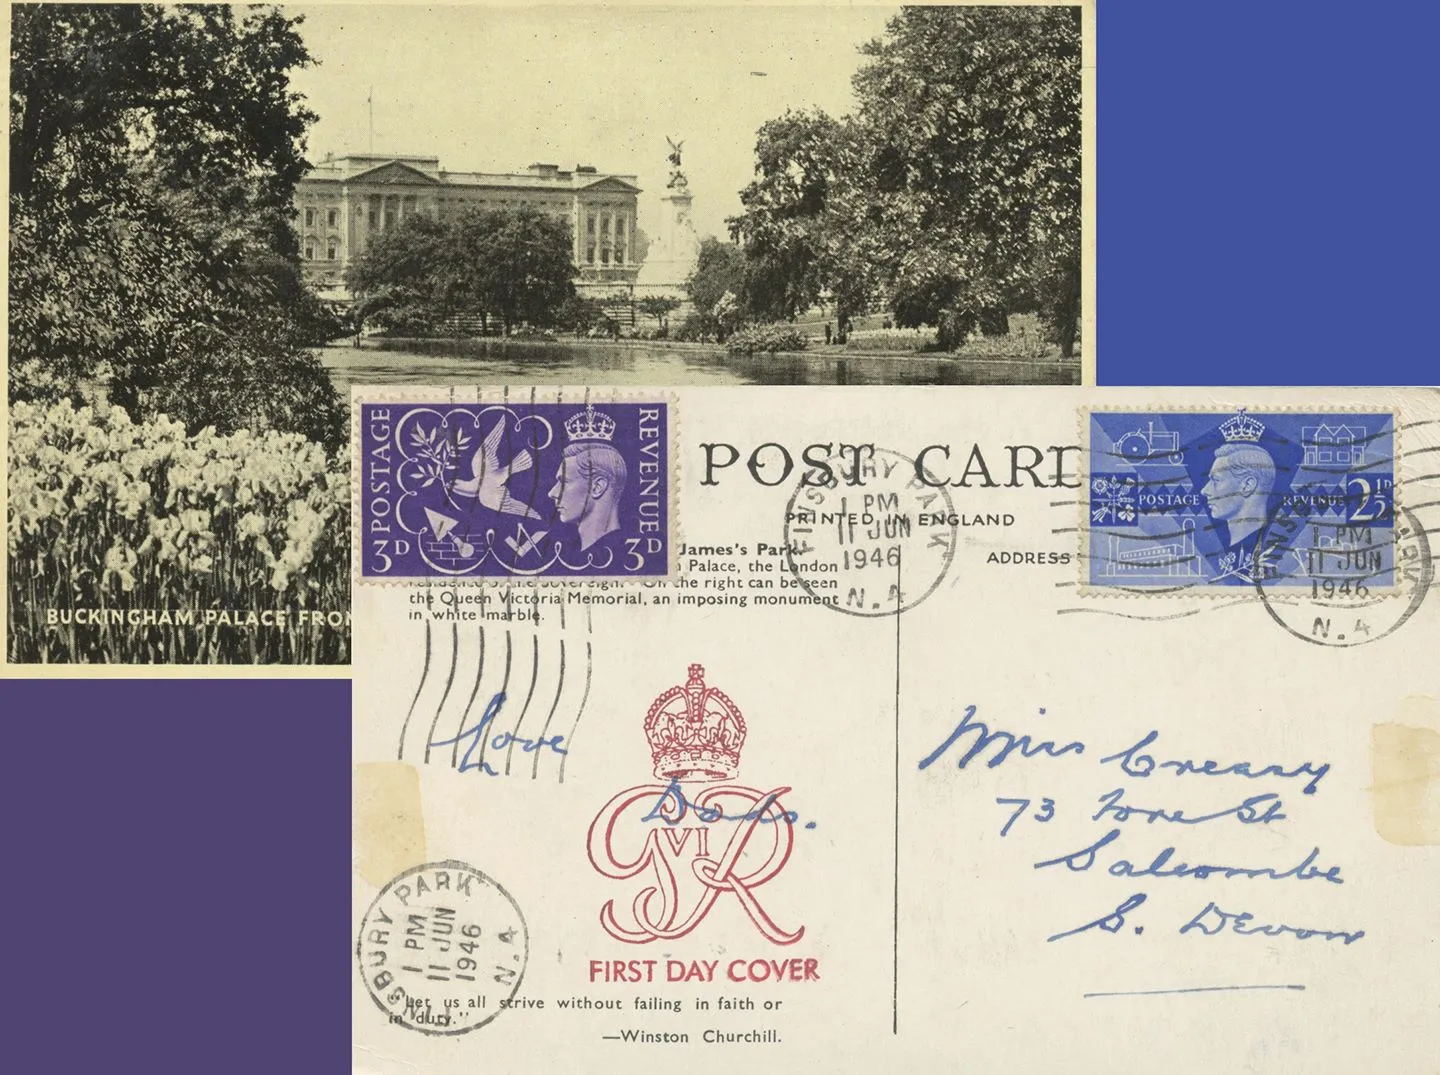 BUCKINGHAM PALACE FROM
POSTAGE
REVENUE
3D
3D
POST CARD
PRINTED IN ENGLAND
ADDRESS
POSTAGE
REVENUE
2½D
FINSBURY PARK
1 PM
11 JUN
1946
N.4
FINSBURY PARK
1 PM
11 JUN
1946
N.4
James's Park.
Palace, the London
residence of the sovereign. On the right can be seen
the Queen Victoria Memorial, an imposing monument
in white marble.
Love
Dads.
GVIR
FIRST DAY COVER
FINSBURY PARK
1 PM
11 JUN
1946
N.4
"Let us all strive without failing in faith or
in duty."
—Winston Churchill.
Miss Creasy
73 Fore St
Salcombe
S. Devon